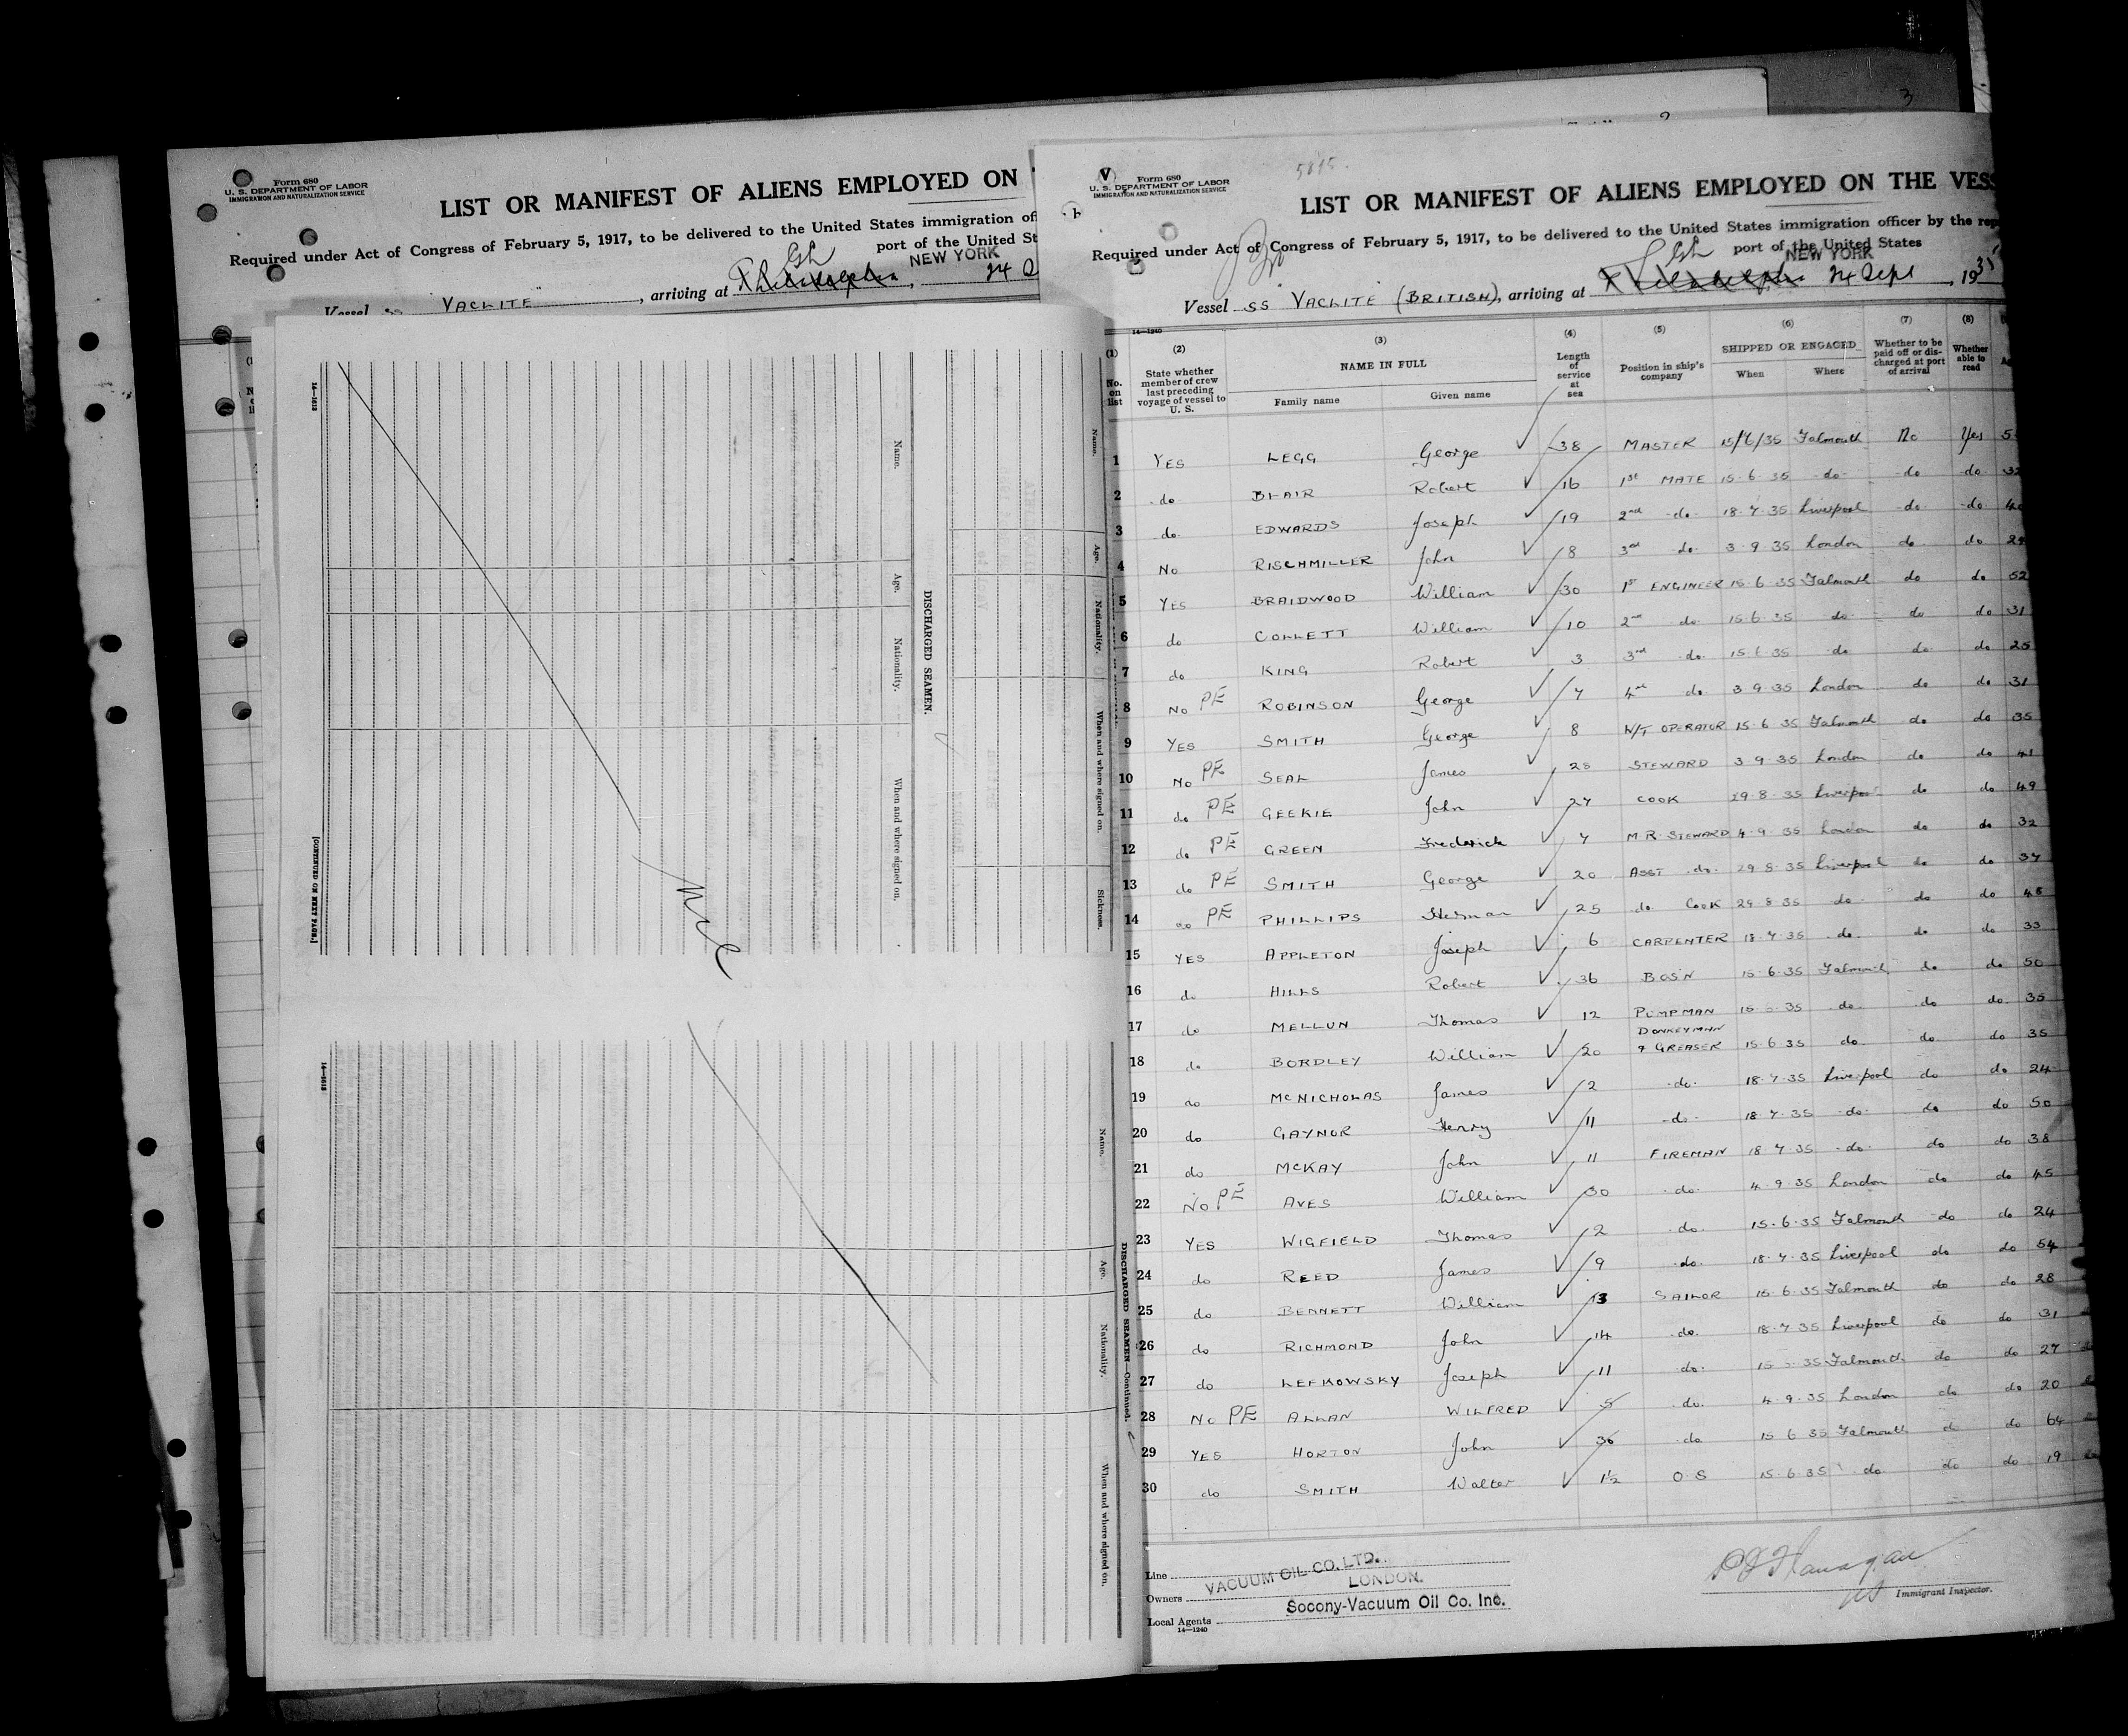 Form 680
U. S. DEPARTMENT OF LABOR
IMMIGRATION AND NATURALIZATION SERVICE
LIST OR MANIFEST OF ALIENS EMPLOYED ON
Required under Act of Congress of February 5, 1917, to be delivered to the United States immigration of
port of the United St
NEW YORK
Vessel ss VACLITE, arriving at Philadelphia, 24
14—1613
Name.
Age.
Nationality.
When and where signed on.
[CONTINUED ON NEXT PAGE.]
DISCHARGED SEAMEN.
Name.
Age.
Nationality.
When and where signed on.
Sickness.
14—1613
Name.
Age.
Nationality.
When and where signed on.
DISCHARGED SEAMEN—Continued.
V
Form 680
U. S. DEPARTMENT OF LABOR
IMMIGRATION AND NATURALIZATION SERVICE
LIST OR MANIFEST OF ALIENS EMPLOYED ON THE VESS
Required under Act of Congress of February 5, 1917, to be delivered to the United States immigration officer by the rep
port of the United States
NEW YORK
Vessel SS VACLITE (BRITISH), arriving at Philadelphia 24 Sept, 1935
14—1240
(1) (2) (3) (4) (5) (6) (7) (8)
No. on list
State whether member of crew last preceding voyage of vessel to U. S.
NAME IN FULL
Family name Given name
Length of service at sea
Position in ship's company
SHIPPED OR ENGAGED
When Where
Whether to be paid off or discharged at port of arrival
Whether able to read
1 YES LEGG George 38 MASTER 15/6/35 Falmouth No Yes
2 do BLAIR Robert 16 1st MATE 15.6.35 do do do 32
3 do EDWARDS Joseph 19 2nd do 18.7.35 Liverpool do do 40
4 No RISCHMILLER John 8 3rd do 3.9.35 London do do 29
5 YES BRAIDWOOD William 30 1st ENGINEER 15.6.35 Falmouth do do 52
6 do COLLETT William 10 2nd do 15.6.35 do do do 31
7 do KING Robert 3 3rd do 15.6.35 do do do 25
8 No PE ROBINSON George 7 4th do 3.9.35 London do do 31
9 YES SMITH George 8 W/T OPERATOR 15.6.35 Falmouth do do 35
10 No PE SEAL James 28 STEWARD 3.9.35 London do do 41
11 do PE GEEKIE John 27 COOK 29.8.35 Liverpool do do 49
12 do PE GREEN Frederick 7 M.R. STEWARD 4.9.35 London do do 32
13 do PE SMITH George 20 ASST do 29.8.35 Liverpool do do 37
14 do PE PHILLIPS Herman 25 do COOK 29.8.35 do do do 48
15 YES APPLETON Joseph 6 CARPENTER 18.7.35 do do do 33
16 do HILLS Robert 36 BOSN 15.6.35 Falmouth do do 50
17 do MELLUN Thomas 12 PUMPMAN 15.6.35 do do do 35
18 do BORDLEY William 20 DONKEYMAN & GREASER 15.6.35 do do do 35
19 do MCNICHOLAS James 2 do 18.7.35 Liverpool do do 24
20 do GAYNOR Henry 11 do 18.7.35 do do do 50
21 do MCKAY John 11 FIREMAN 18.7.35 do do do 38
22 No PE AVES William 30 do 4.9.35 London do do 45
23 YES WIGFIELD Thomas 2 do 15.6.35 Falmouth do do 24
24 do REED James 9 do 18.7.35 Liverpool do do 54
25 do BENNETT William 13 SAILOR 15.6.35 Falmouth do do 28
26 do RICHMOND John 14 do 18.7.35 Liverpool do do 31
27 do LEFKOWSKY Joseph 11 do 15.6.35 Falmouth do do 27
28 No PE ALLAN WILFRED 5 do 4.9.35 London do do 20
29 YES HORTON John 36 do 15.6.35 Falmouth do do 64
30 do SMITH Walter 1½ O.S 15.6.35 do do do 19
Line
VACUUM OIL CO. LTD.
LONDON.
Owners
Socony-Vacuum Oil Co. Inc.
Local Agents
14—1240
Immigrant Inspector.